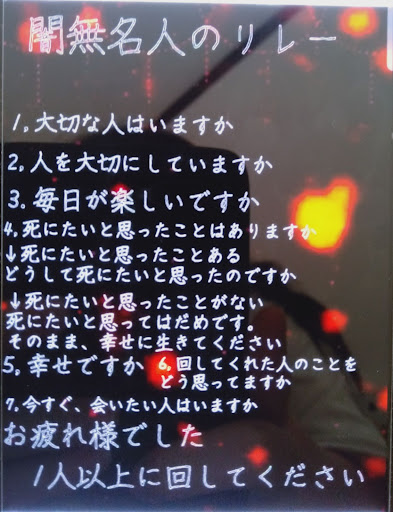 闇無名人のリレー
1.大切な人はいますか
2.人を大切にしていますか
3.毎日が楽しいですか
4.死にたいと思ったことはありますか
↓死にたいと思ったことある
どうして死にたいと思ったのですか
↓死にたいと思ったことがない
死にたいと思ってはだめです。
そのまま、幸せに生きてください
5.幸せですか
6.回してくれた人のことを
どう思ってますか
7.今すぐ、会いたい人はいますか
お疲れ様でした
1人以上に回してください